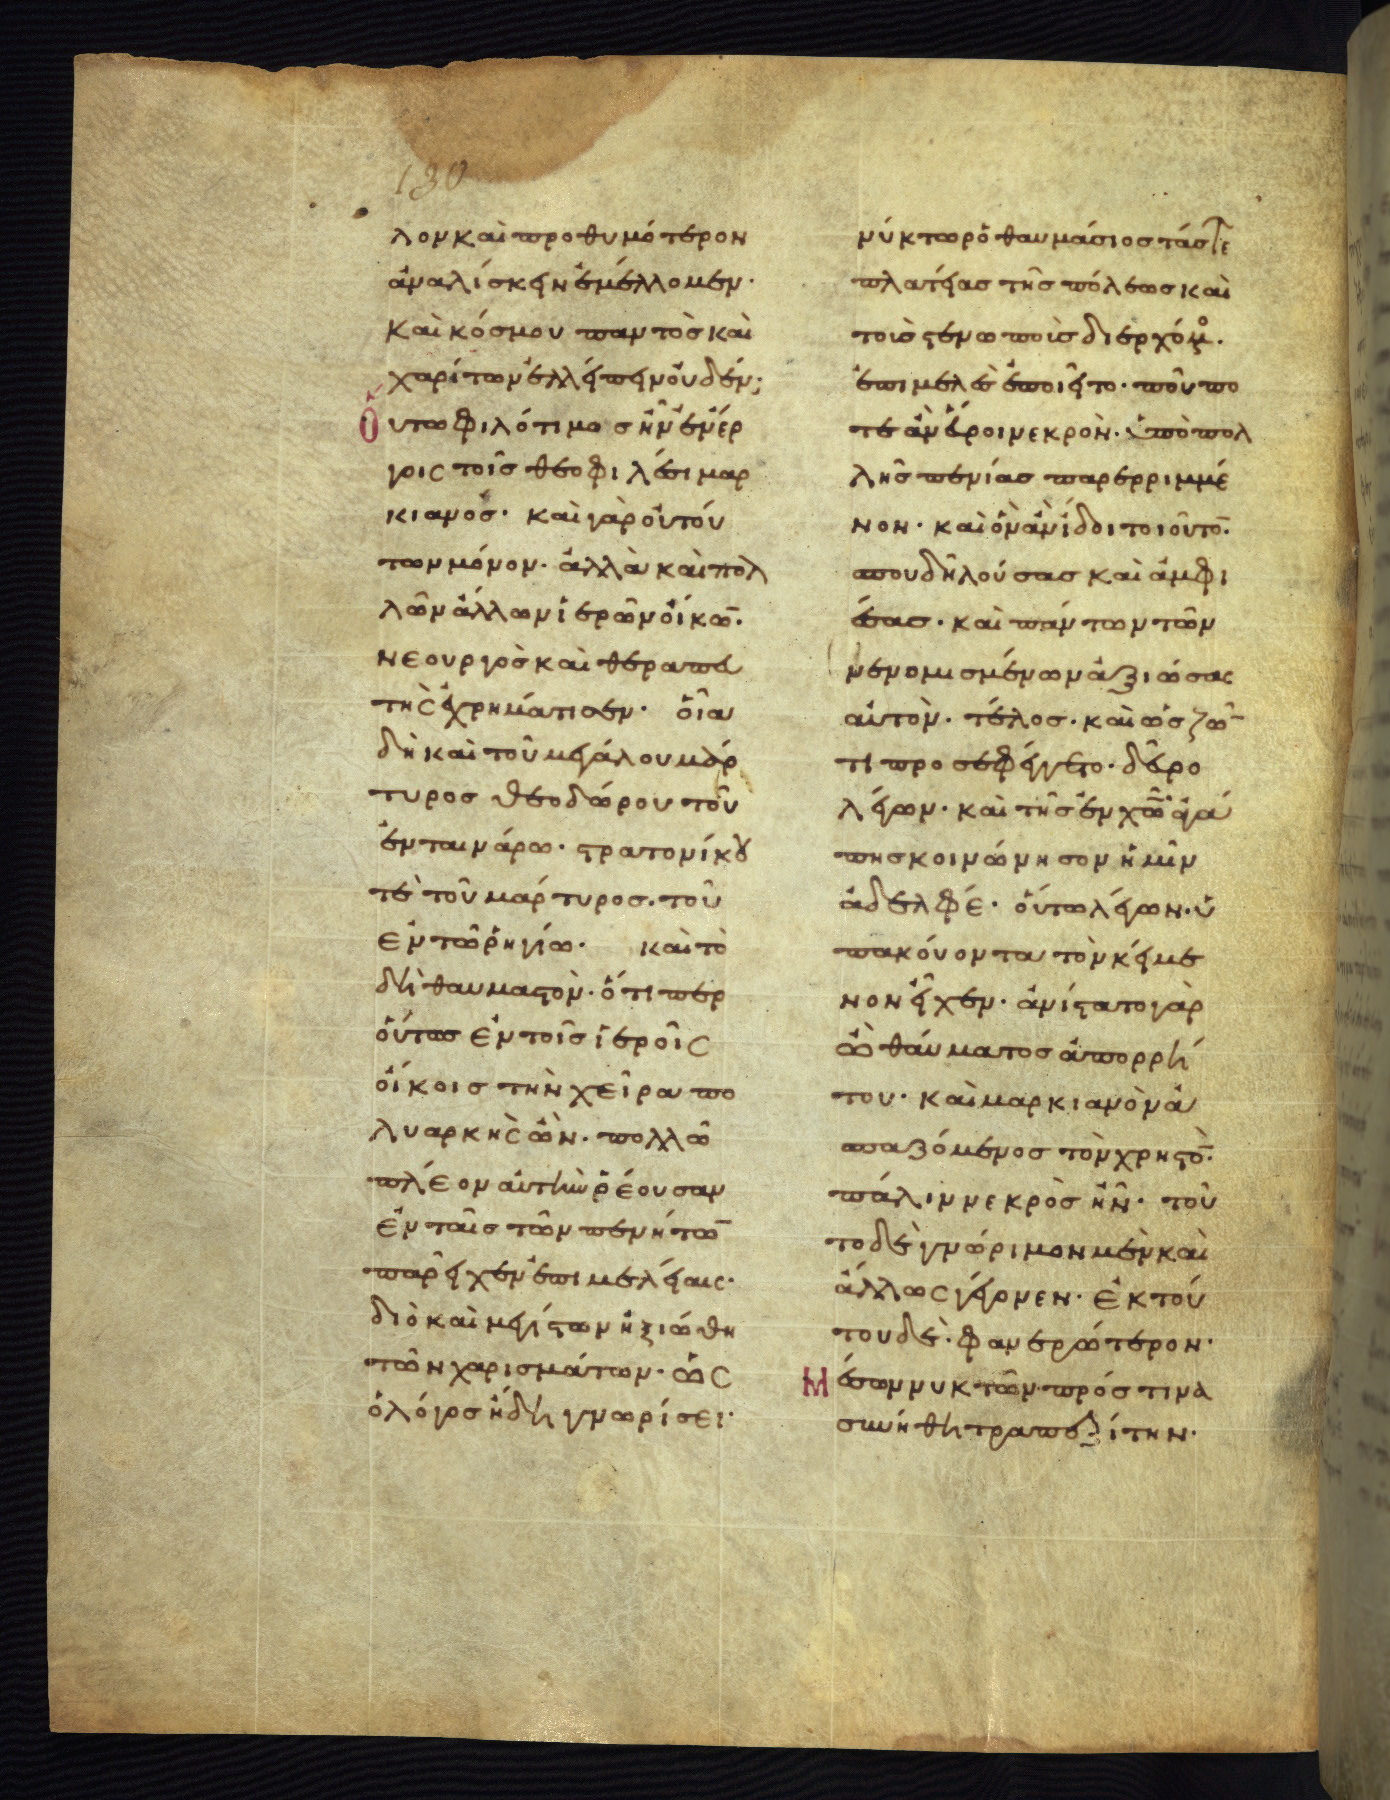 130
λον καὶ προθυμότερον
ἀναλίσκειν ἐμέλλομεν·
καὶ κόσμου παντὸς καὶ
χαρίτων ἐλλείπειν οὐδέν;
Οὕτω φιλότιμος ἦν ἐν ἔρ
γοις τοῖς θεοφιλέσι μαρ
κιανός· καὶ γὰρ οὐ τού
των μόνον· ἀλλὰ καὶ πολ
λῶν ἄλλων ἱερῶν οἴκω̅·
νεουργὸς καὶ θεραπευ
τὴς ἐχρημάτισεν· οἷα
δὴ καὶ τοῦ μεγάλου μάρ
τυρος θεοδώρου τοῦ
ἐν ταινάρω· στρατονίκου
τὲ τοῦ μάρτυρος· τοῦ
ἐν τῶ ῥηγίω· καὶ τὸ
δὴ θαυμαστὸν· ὅτι περ
οὕτως ἐν τοῖς ἱεροῖς
οἴκοις τὴν χεῖρα πο
λυαρκὴς ὢν· πολλῶ
πλέον αὐτὴν ῥέουσαν
ἐν ταῖς τῶν πενήτω̅
παρεῖχεν ἐπιμελείαις·
διὸ καὶ μεγίστων ἠξιώθη
τῶν χαρισμάτων· ὡς
ὁ λόγος ἤδη γνωρίσει·
νύκτωρ ὁ θαυμάσιος τάς τε
πλατείας τῆς πόλεως καὶ
τοὶς στενωποὶς διερχόμ̊·
ἐπιμελὲς ἐποιεῖτο· ποῦ πο
τε ἀνεύροι νεκρὸν· ὑπὸ πολ
λῆς πενίας παρερριμμέ
νον· καὶ ὃν ἂν ἴδοι τοιοῦτο̅·
σπουδῆ λούσας καὶ ἀμφι
έσας· καὶ πάντων τῶν
νενομισμένων ἀξιώσας
αὐτὸν· τέλος· καὶ ὡς ζῶ̅
τι προσεφθέγγετο· δεῦρο
λέγων· καὶ τῆς ἐν χῶ̅ ἀγά
πης κοινώνησον ἡμῖν
ἀδελφέ· οὕτω λέγων· ὑ
πακούοντα τὸν κείμε
νον εἶχεν· ἀνίστατο γὰρ
ὢ θαύματος ἀπορρή
του· καὶ μαρκιανὸν ἀ
σπαζόμενος τὸν χρηστὸ̅·
πάλιν νεκρὸς ἦν· τοῦ
το δὲ γνώριμον μὲν καὶ
ἄλλως γέγονεν· ἐκ τού
του δὲ· φανερώτερον·
Μέσων νυκτῶν· πρός τινα
συνήθη τραπεζίτην·